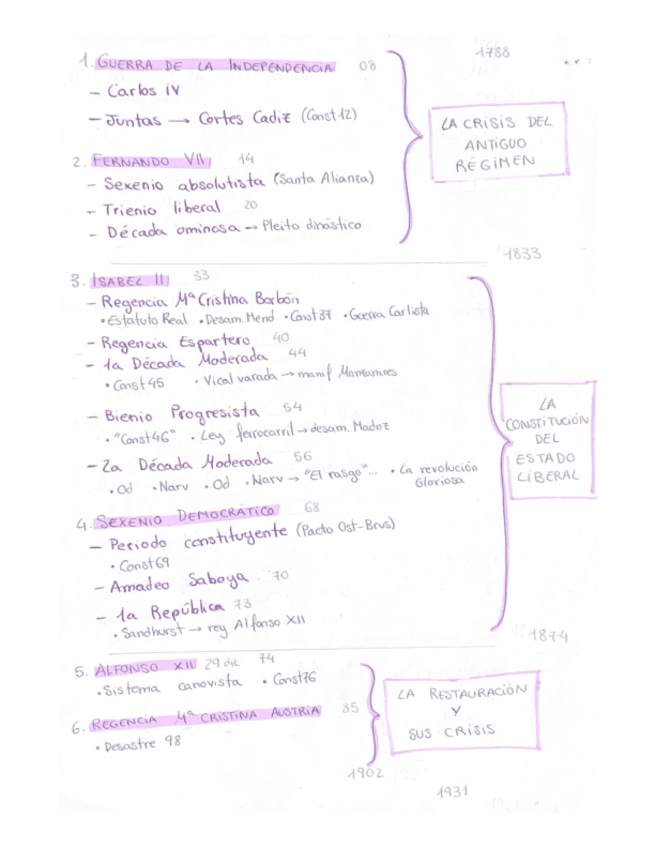 1788
1. GUERRA DE LA INDEPENDENCIA 08
- Carlos IV
- Juntas → Cortes Cadiz (Const 12)
LA CRISIS DEL
ANTIGUO
RÉGIMEN
2. FERNANDO VII 14
- Sexenio absolutista (Santa Alianza)
- Trienio liberal 20
- Década ominosa → Pleito dinástico
1833
3. ISABEL II 33
- Regencia Mª Cristina Borbón
• Estatuto Real • Desam. Mend • Const 37 • Guerra Carlista
- Regencia Espartero 40
- 1a Década Moderada 44
• Const 45 • Vicalvarada → manif Manzanares
- Bienio Progresista 54
• "Const 46" • Ley ferrocarril → desam. Madoz
- 2a Década Moderada 56
• Od • Narv • Od • Narv → "El rasgo"... • La revolución
Gloriosa
LA
CONSTITUCIÓN
DEL
ESTADO
LIBERAL
4. SEXENIO DEMOCRÁTICO 68
- Periodo constituyente (Pacto Ost-Brus)
• Const 69
- Amadeo Saboya 70
- 1a República 73
• Sandhurst → rey Alfonso XII
1874
5. ALFONSO XII 29 dic 74
• Sistema canovista • Const 76
6. REGENCIA Mª CRISTINA AUSTRIA 85
• Desastre 98
LA RESTAURACIÓN
Y
SUS CRISIS
1902
1931